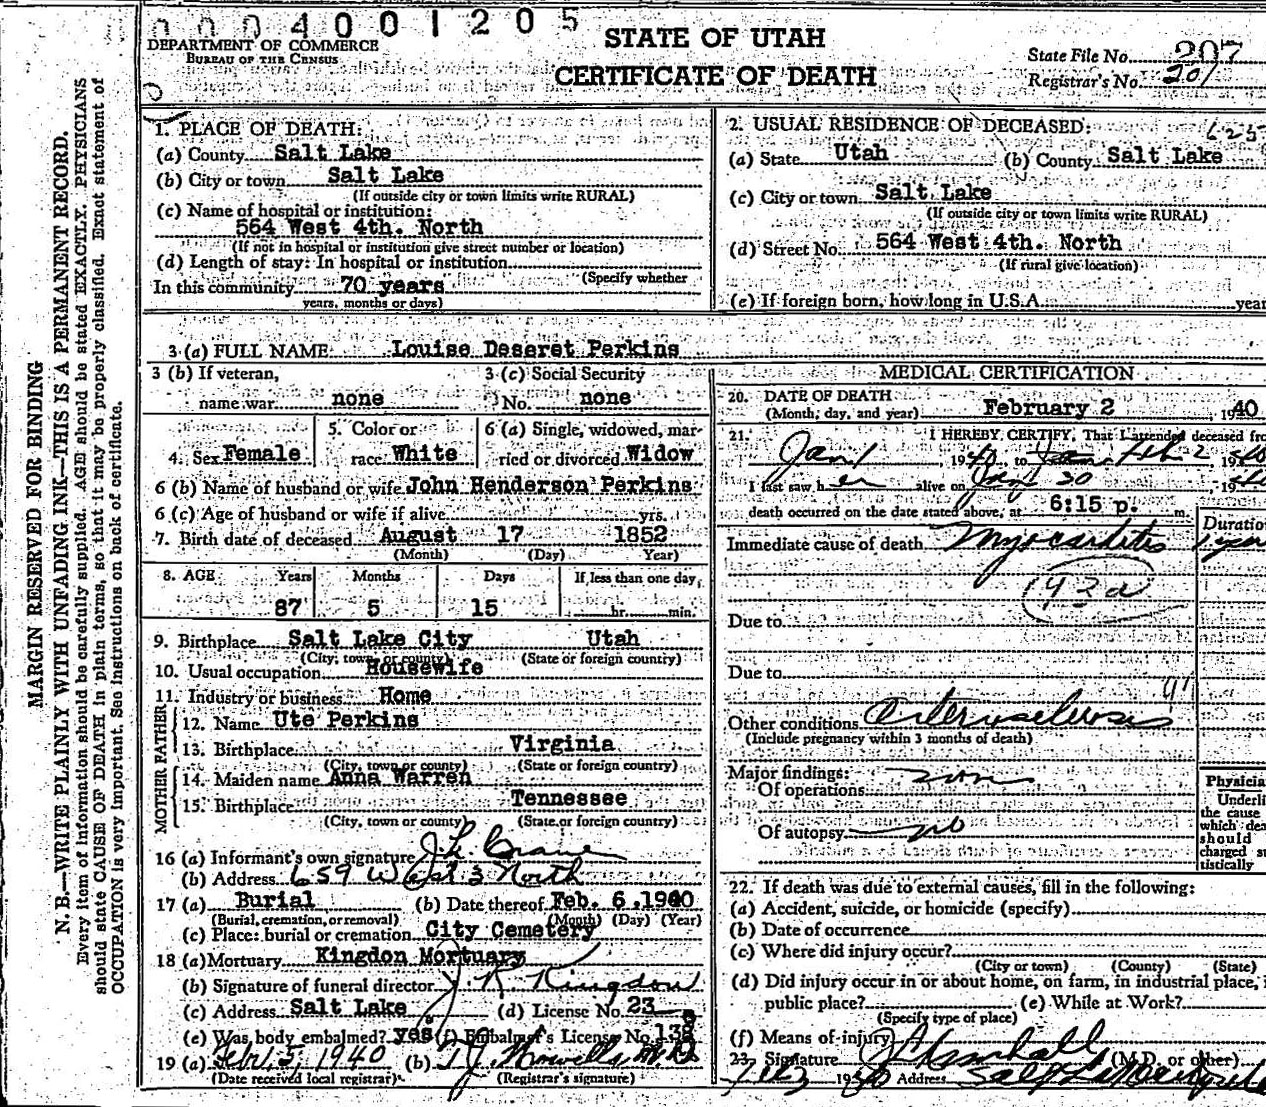 0004001205
DEPARTMENT OF COMMERCE
BUREAU OF THE CENSUS
STATE OF UTAH
CERTIFICATE OF DEATH
State File No. 207
Registrar's No. 201
MARGIN RESERVED FOR BINDING
N. B.—WRITE PLAINLY WITH UNFADING INK—THIS IS A PERMANENT RECORD.
Every item of information should be carefully supplied. AGE should be stated EXACTLY. PHYSICIANS
should state CAUSE OF DEATH in plain terms, so that it may be properly classified. Exact statement of
OCCUPATION is very important. See instructions on back of certificate.
1. PLACE OF DEATH:
(a) County Salt Lake
(b) City or town Salt Lake
(If outside city or town limits write RURAL)
(c) Name of hospital or institution:
564 West 4th. North
(If not in hospital or institution give street number or location)
(d) Length of stay: In hospital or institution
(Specify whether
In this community 70 years
years, months or days)
2. USUAL RESIDENCE OF DECEASED:
(a) State Utah (b) County Salt Lake
(c) City or town Salt Lake
(If outside city or town limits write RURAL)
(d) Street No. 564 West 4th. North
(If rural give location)
(e) If foreign born, how long in U.S.A. year
3 (a) FULL NAME Louise Deseret Perkins
3 (b) If veteran,
name war none
3 (c) Social Security
No. none
4. Sex Female
5. Color or
race White
6 (a) Single, widowed, mar-
ried or divorced Widow
6 (b) Name of husband or wife John Henderson Perkins
6 (c) Age of husband or wife if alive yrs.
7. Birth date of deceased August 17 1852
(Month) (Day) Year)
8. AGE Years Months Days If less than one day,
87 5 15 hr. min.
9. Birthplace Salt Lake City Utah
(City, town or county) (State or foreign country)
10. Usual occupation Housewife
11. Industry or business Home
FATHER
12. Name Ute Perkins
13. Birthplace Virginia
(City, town or county) (State or foreign country)
MOTHER
14. Maiden name Anna Warren
15. Birthplace Tennessee
(City, town or county) (State or foreign country)
16 (a) Informant's own signature J. L.
(b) Address 659 West 3 North
17 (a) Burial (b) Date thereof Feb. 6, 1940
(Burial, cremation, or removal) (Month) (Day) (Year)
(c) Place: burial or cremation City Cemetery
18 (a) Mortuary Kingdon Mortuary
(b) Signature of funeral director J. K. Kingdon
(c) Address Salt Lake (d) License No. 23
(e) Was body embalmed? yes (f) Embalmer's License No. 138
19 (a) Feb. 5, 1940 (b) T. J. Howells
(Date received local registrar) (Registrar's signature)
MEDICAL CERTIFICATION
20. DATE OF DEATH
(Month, day, and year) February 2 1940
21. I HEREBY CERTIFY, That I attended deceased fro
Jan 1 1940 to Feb 2 1940
I last saw her alive on Jan 30, 1940
death occurred on the date stated above, at 6:15 p. m.
Duration
Immediate cause of death Myocarditis 1 year
93d
Due to
Due to
Other conditions Arteriosclerosis
(Include pregnancy within 3 months of death)
Major findings:
Of operations
Of autopsy no
Physicia
Underli
the cause
which dea
should
charged st
tistically
22. If death was due to external causes, fill in the following:
(a) Accident, suicide, or homicide (specify)
(b) Date of occurrence
(c) Where did injury occur?
(City or town) (County) (State)
(d) Did injury occur in or about home, on farm, in industrial place, i
public place? (e) While at Work?
(Specify type of place)
(f) Means of injury
23. Signature (M.D. or other)
Address Salt Lake